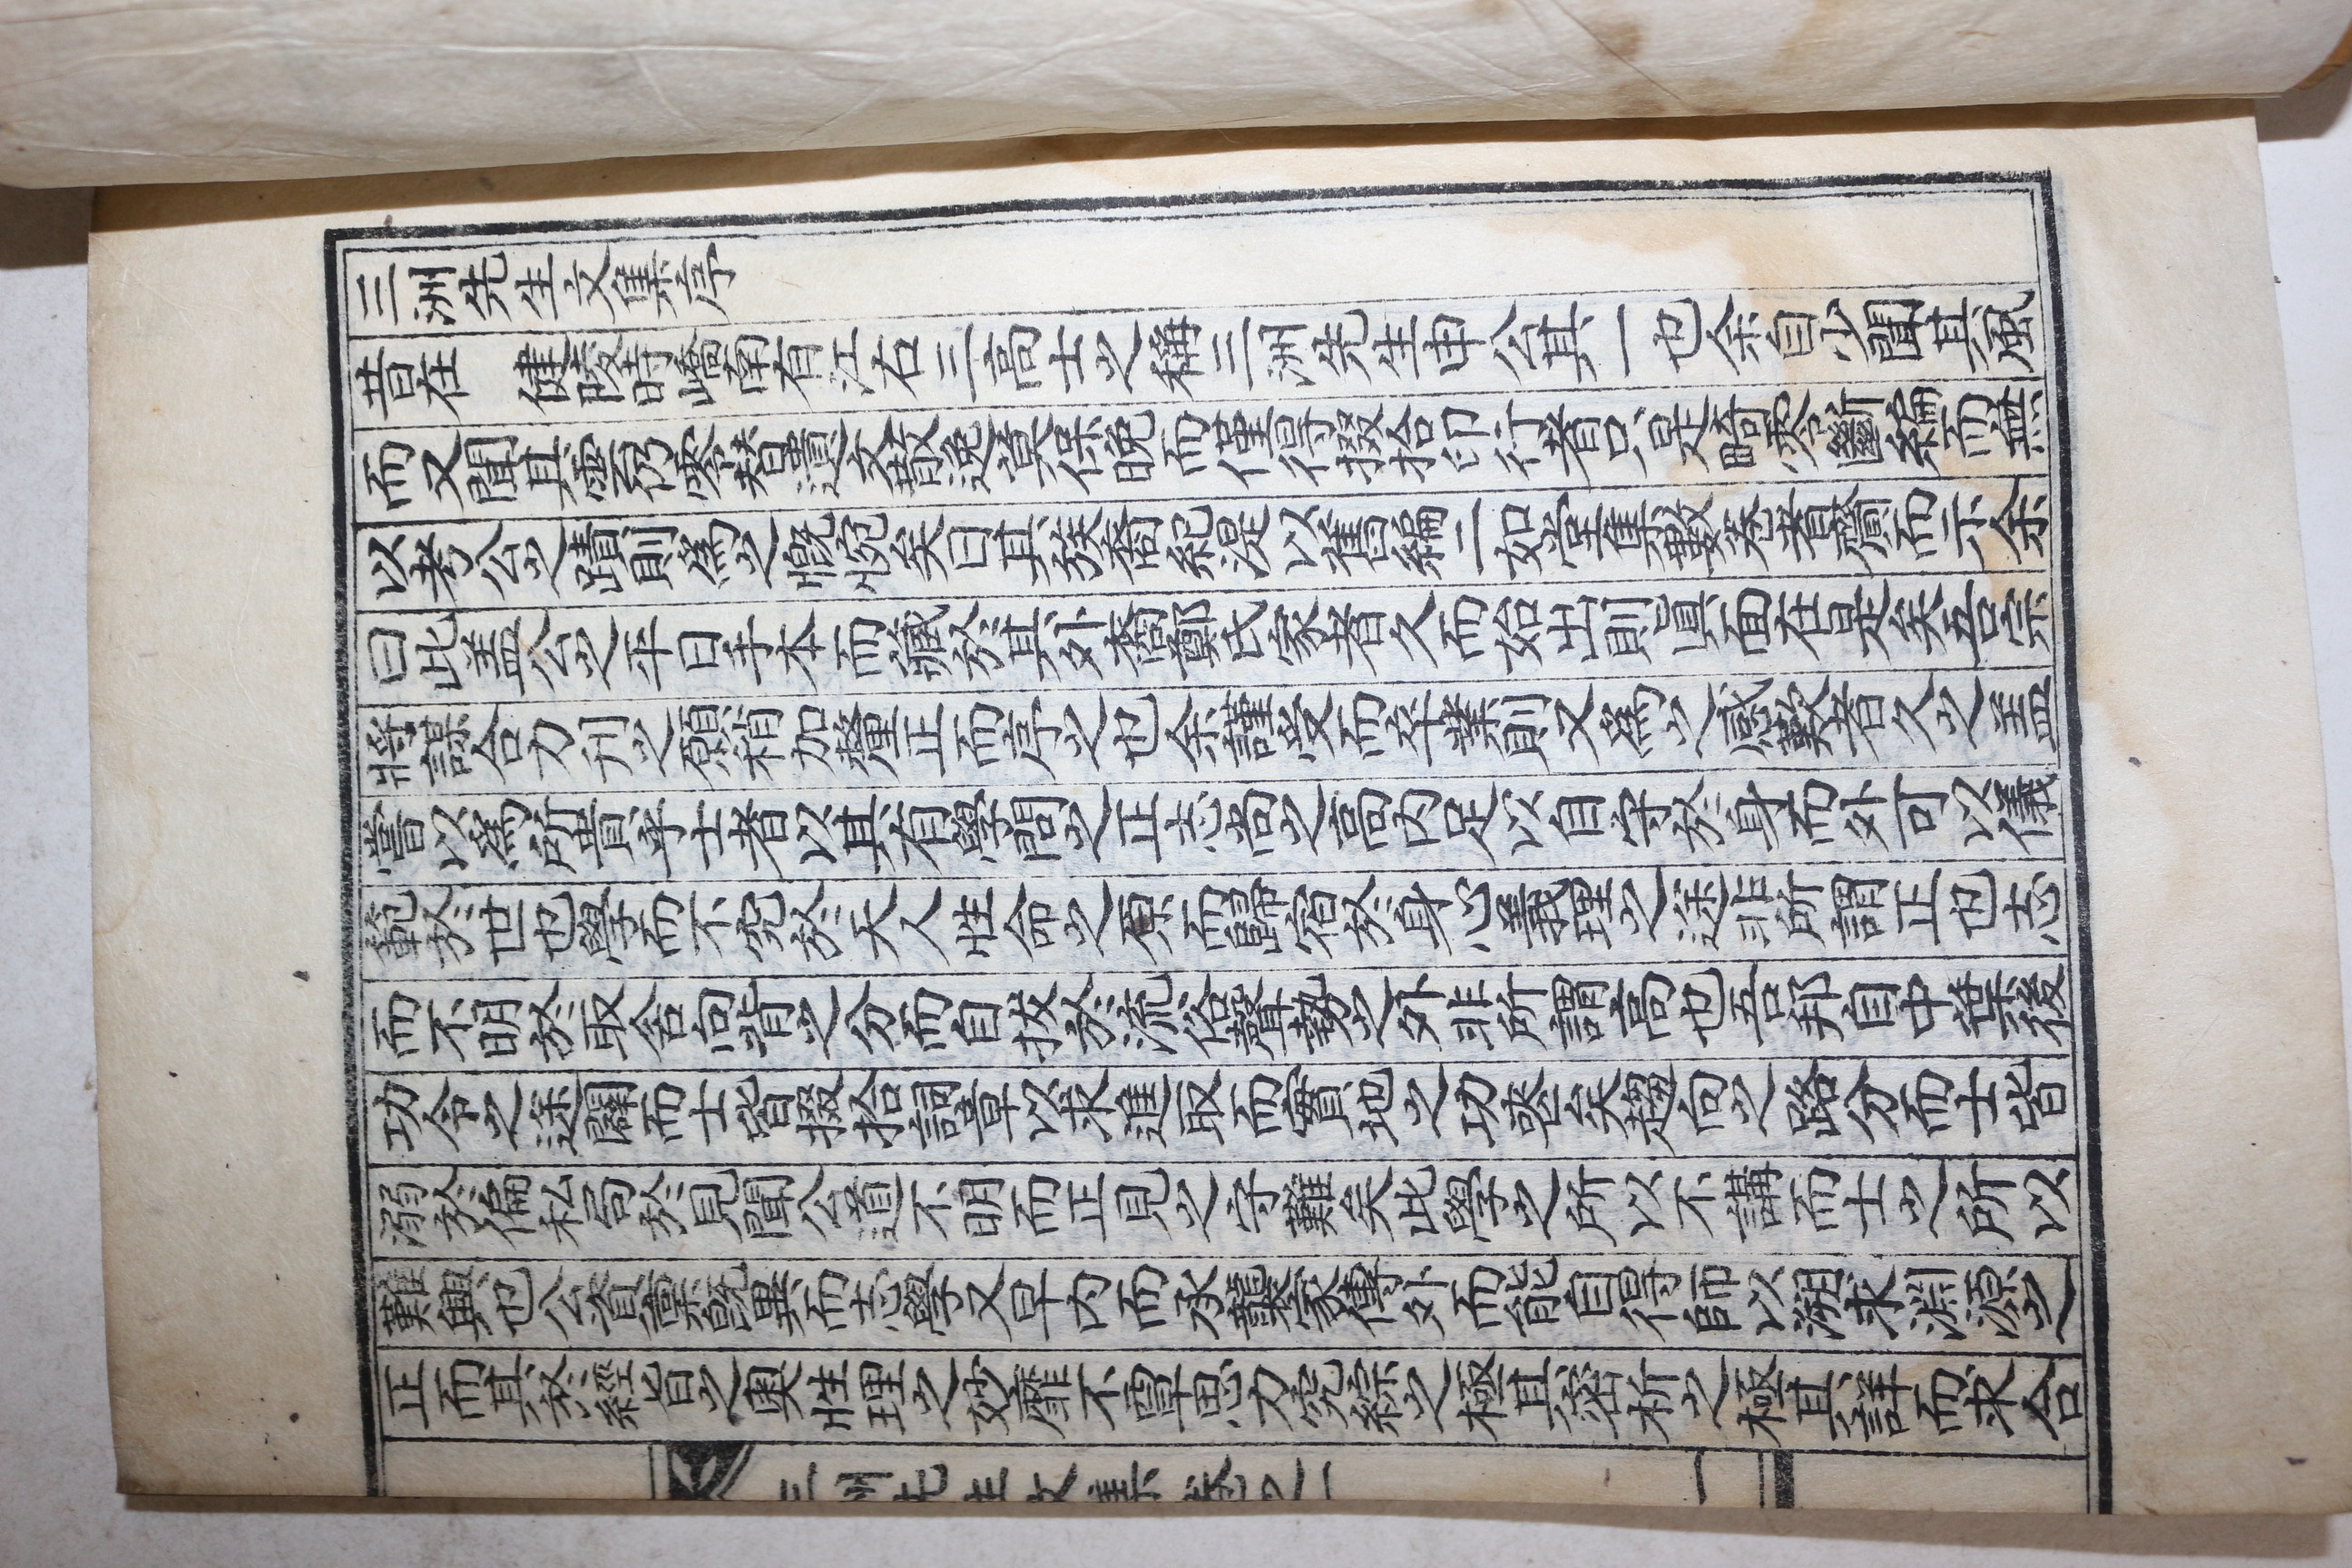 三洲先生文集序
昔在 健陵時嶠南有江右三高士之稱三洲先生申公其一也余自少聞其風
而又聞其雲仍零替遺文散逸莫保晩而僅得掇拾印行者只是略零斷編而無
以考公之蹟則爲之慨惋矣日其族裔 以舊編二 集數卷者齎而示余
曰此盖公之平日手本而藏於其外裔鄭氏家者久而始出則眞面在是矣吾宗
將謀合力刊之願稍加釐正而序之也余謹受而卒業則又爲之感歎者久之盖
嘗以爲所貴乎士者以其有學問之正志尙之高內足以自守於身而外可以儀
範於世也學而不究於天人性命之原而歸宿於身心義理之塗非所謂正也志
而不明於取舍向背之分而自拔於流俗聲勢之外非所謂高也吾邦自中葉後
功令之塗闢而士皆掇拾詞章以求進取而實地之功荒矣趨向之路分而士皆
溺於偏私局於見聞公道不明而正見之守難矣此學之所以不講而士之所以
難興也公資稟旣異而志學又早內而承襲家傳外而能自得師以溯求淵源之
正而其於經旨之奧性理之妙靡不覃思力究綜之極其密析之極其詳而求合
三洲先生文集卷之一 一